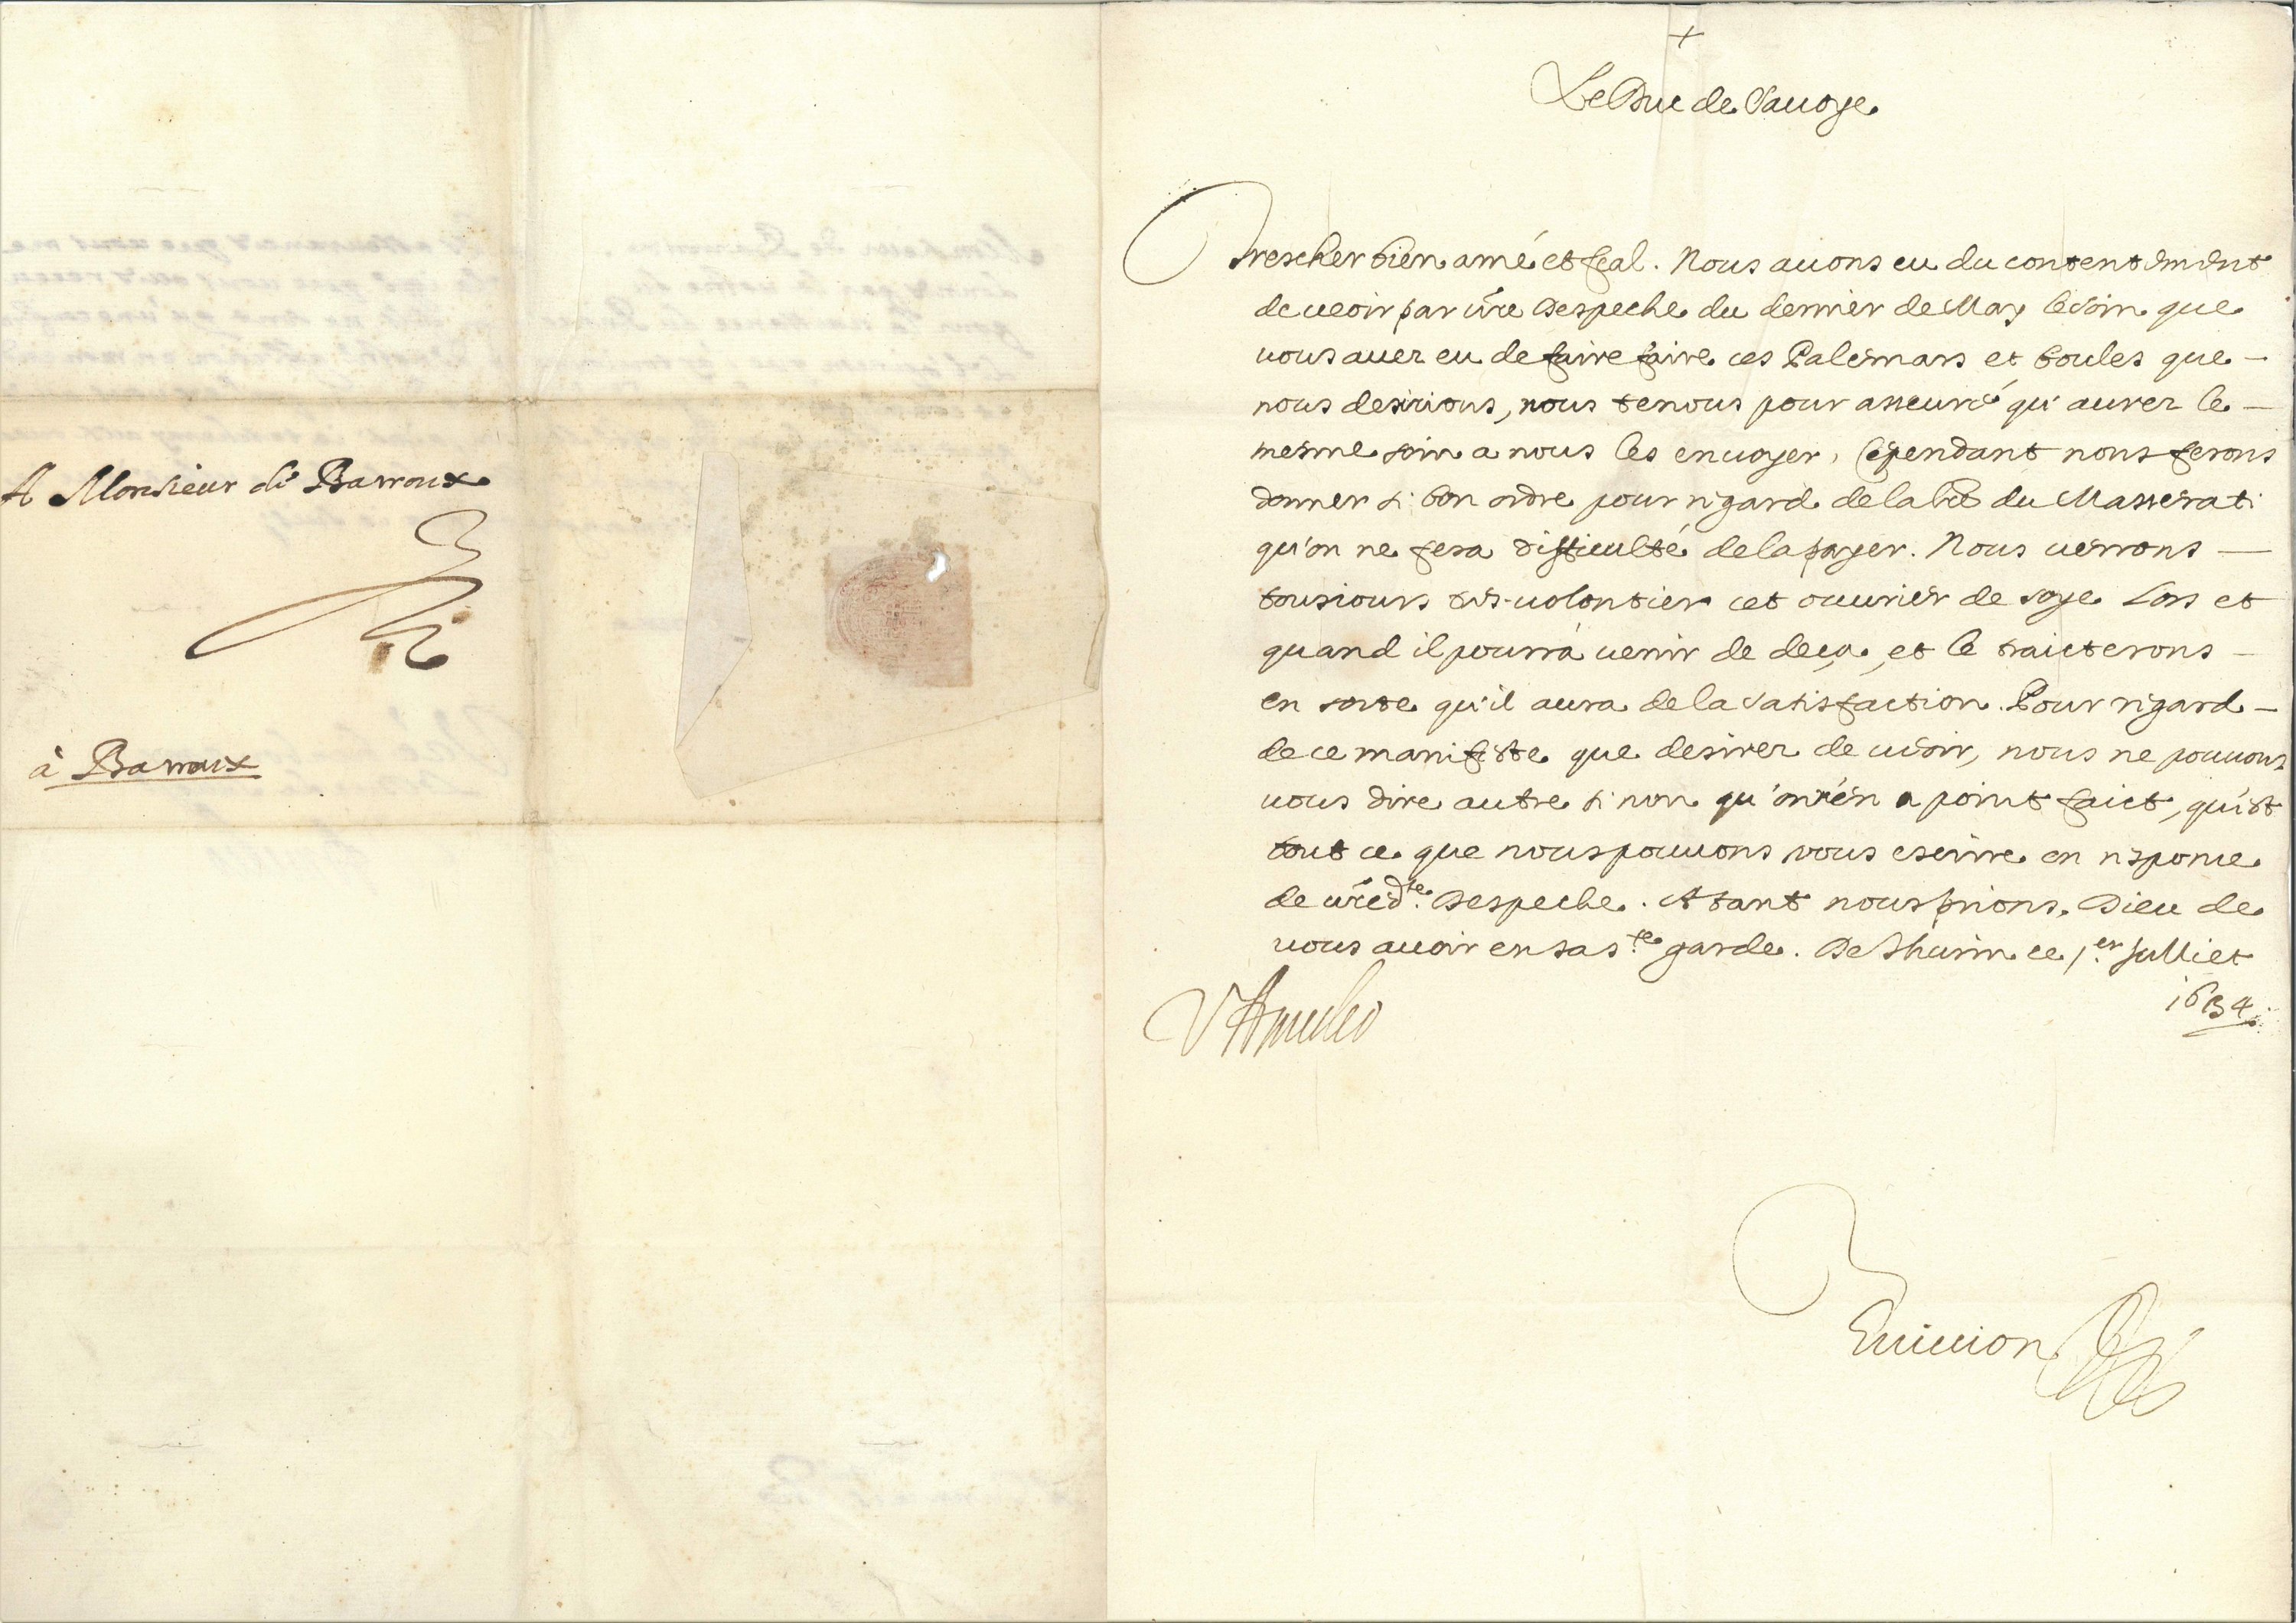 A Monsieur de Barroux
à Barroux
+
Le Duc de Sauoye
Trescher bien amé et feal. Nous auons eu du contentement
de ueoir par vre Despeche du dernier de May le soin que
uous auez eu de faire faire ces Palemars et boules que
nous desirions, nous tenons pour asseuré qu'aurez le
mesme soin a nous les enuoyer, Cependant nous ferons
donner si bon ordre pour regard de la du Masserati
qu'on ne fera difficulté de la payer. Nous uerrons
tousiours tres-uolontier cet ouurier de soye Lors et
quand il pourra uenir de deça, et le traicterons
en sorte qu'il aura de la satisfaction. Pour regard
de ce manifeste que desirez de ueoir, nous ne pouuons
uous dire autre si non qu'on n'en a point faict, qu'est
tout ce que nous pouuons vous escrire en responce
de vre dte Despeche. Atant nous prions Dieu de
uous auoir en sa ste garde. De Thurin ce 1er Julliet
1634
V Amedeo